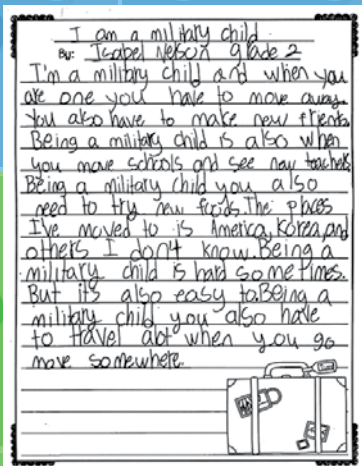 I am a military child
By: Isabel Nelson grade 2
I'm a military child and when you
are one you have to move away.
You also have to make new friends.
Being a military child is also when
you move schools and see new teachers
Being a military child you also
need to try new foods. The places
I've moved to is America, Korea, and
others I don't know. Being a
military child is hard sometimes.
But it's also easy to. Being a
military child you also have
to travel alot when you go
move somewhere.